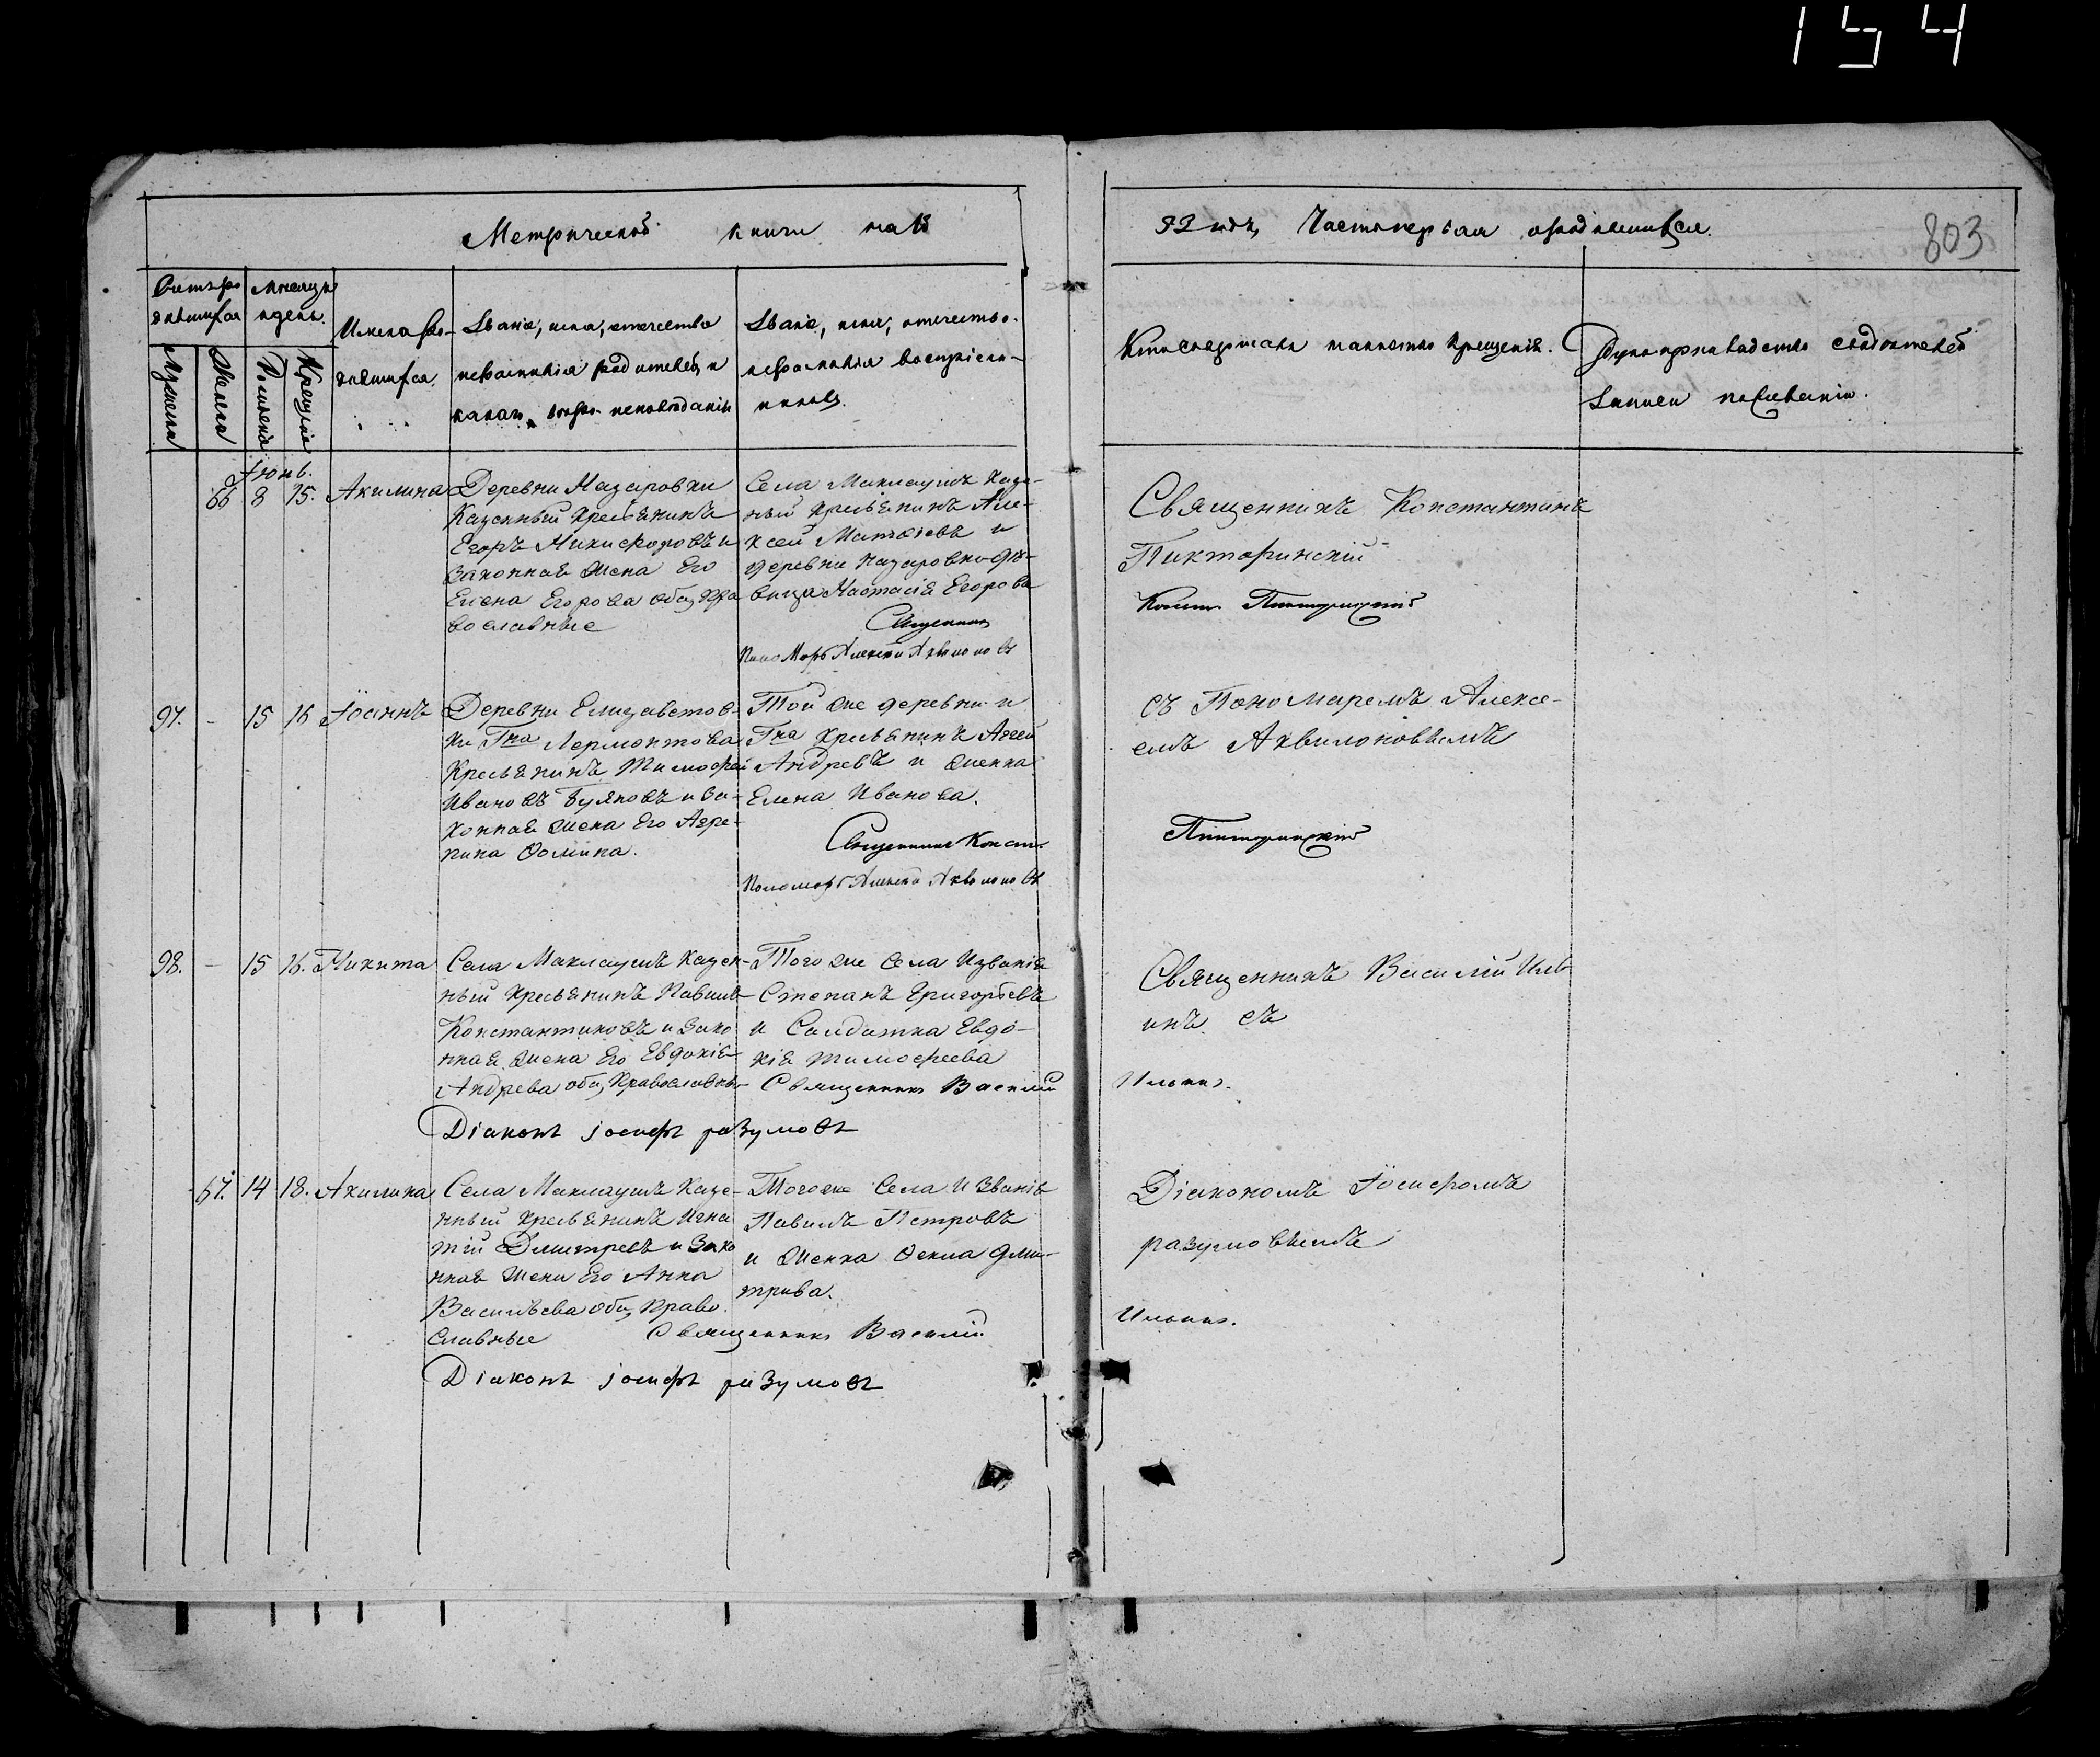 154
Метрической книги на 18
52 годъ, Часть первая о родившихся.
803
Счетъ родившихся
Месяцъ и день.
Мужеска
Женска
Рожденія
Крещенія
Имена родившихся.
Званіе, имя, отчество
и фамилія родителей, и
какого вѣроисповѣданія
Званіе, имя, отчество
и фамилія воспріем-
никовъ
Кто совершалъ таинство крещенія.
Рукоприкладство свидѣтелей
записи по желанію.
Іюнь.
66 8 15. Акилина
Деревни Назаровки
Казенный крестьянинъ
Егоръ Никифоровъ и
законная жена Его
Елена Егорова оба Пра
вославные
Села Маклаушъ Казе-
ный крестьянинъ Але-
ксей Матвѣевъ и
деревни Назаровки дѣ-
вица Настасія Егорова
Священникъ
Пономарь Алексей Аквилоновъ
Священникъ Константинъ
Пикторинскій
97. - 15 16 Іоаннъ
Деревни Елизаветов-
ки Гна Лермонтова
Крестьянинъ Тимофей
Ивановъ Буяновъ и за-
конная жена Его Агре-
пина Фомина.
Той же деревни и
Гна крестьянинъ Агей
Андревъ и женка
Елена Иванова.
Священникъ Конст.
Пономарь Алексей Аквилоновъ
съ Пономаремъ Алексе-
емъ Аквилоновымъ
98. - 15 16. Никита
Села Маклаушъ Казен-
ный крестьянинъ Павилъ
Константиновъ и зако
нная жена Его Евдокія
Андрева оба Православны
Діаконъ іосифъ разумовъ
Того же села и званія
Степанъ Григорьевъ
и Солдатка Евдо-
кія Тимофеева
Священникъ Василий
Священникъ Василій Иль
инъ съ
Ильинъ.
67. 14 18. Акилина
Села Маклаушъ Казе-
нный крестьянинъ Игна
тій Дмитревъ и зако
нная жена Его Анна
Васильева оба Право
славные
Того же села и званія
Павилъ Петровъ
и женка Фекла Дми-
трива.
Священникъ Василий
Діаконъ іосифъ разумовъ
Діакономъ Іосифомъ
разумовымъ
Ильинъ.